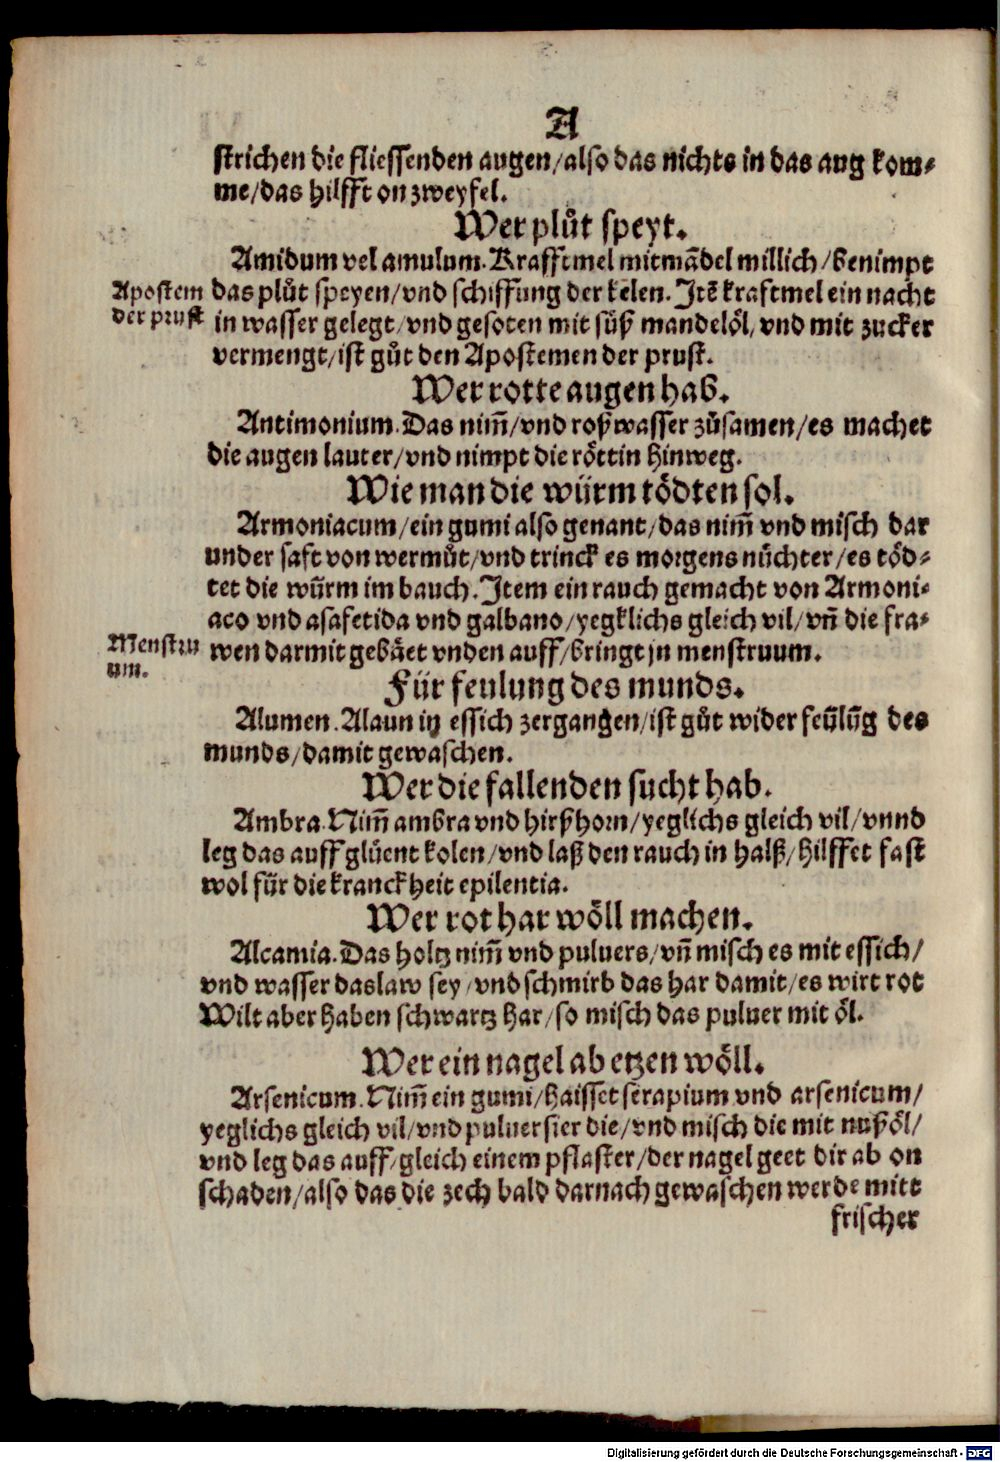 A
strichen die fliessenden augen/also das nichts in das aug kom-
me/das hilfft on zweyfel.
Wer plůt speyt.
Amidum vel amulum. Krafftmel mit mãdel millich/benimpt
Apostem
der prust
das plůt speyen/vnd schiffung der kelen. Jtẽ kraftmel ein nacht
in wasser gelegt/vnd gesoten mit süß mandelöl/vnd mit zucker
vermengt/ist gůt den Apostemen der prust.
Wer rotte augen hab.
Antimonium. Das nim̃/vnd roßwasser zůsamen/es machet
die augen lauter/vnd nimpt die röttin hinweg.
Wie man die würm tödten sol.
Armoniacum/ein gumi also genant/das nim̃ vnd misch dar
under saft von wermůt/vnd trinck es morgens nüchter/es töd-
tet die würm im bauch. Jtem ein rauch gemacht von Armoni-
aco vnd asafetida vnd galbano/yegklichs gleich vil/vñ die fra-
Menstru
um.
wen darmit gebäet vnden auff/bringt jn menstruum.
Für feulung des munds.
Alumen. Alaun in essich zergangen/ist gůt wider feülũg des
munds/damit gewaschen.
Wer die fallenden sucht hab.
Ambra. Nim̃ ambra vnd hirßhorn/yeglichs gleich vil/vnnd
leg das auff glüent kolen/vnd laß den rauch in halß/hilffet fast
wol für die kranckheit epilentia.
Wer rot har wöll machen.
Alcamia. Das holtz nim̃ vnd puluers/vñ misch es mit essich/
vnd wasser das law sey/vnd schmirb das har damit/es wirt rot
Wilt aber haben schwartz har/so misch das puluer mit öl.
Wer ein nagel ab etzen wöll.
Arsenicum. Nim̃ ein gumi/haisset serapium vnd arsenicum/
yeglichs gleich vil/vnd puluersier die/vnd misch die mit nußöl/
vnd leg das auff/gleich einem pflaster/der nagel geet dir ab on
schaden/also das die zech bald darnach gewaschen werde mitt
frischer
Digitalisierung gefördert durch die Deutsche Forschungsgemeinschaft - DFG